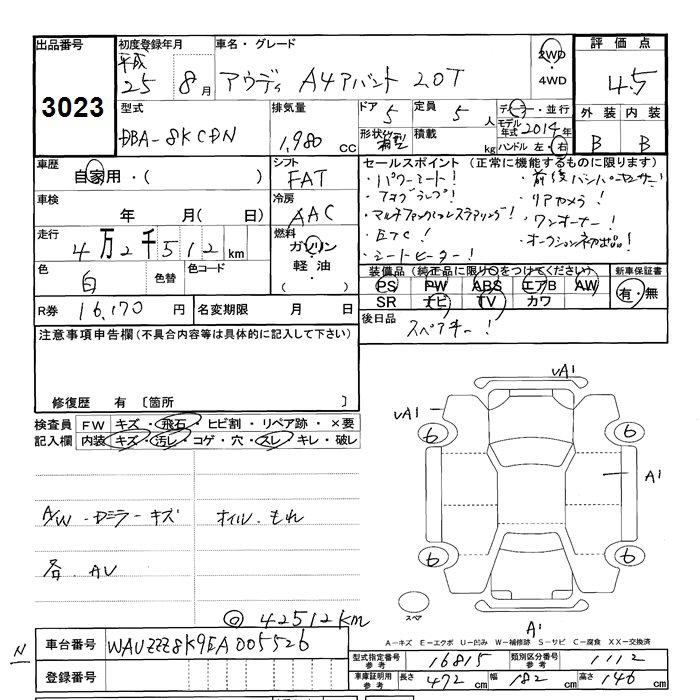 出品番号 初度登録年月 車名・グレード 2WD・4WD 評価点
3023 平成25 8月 アウディ A4アバント 2.0T 4.5
型式 排気量 ドア 5 定員 5人 ディーラー・並行 外装 内装
DBA-8KCDN 1,980 cc 形状 箱型 積載 kg モデル年式 2014年 ハンドル 左・右 B B
車歴 シフト セールスポイント (正常に機能するものに限ります)
自家用・( ) FAT ・パワーシート! ・前後バンパーセンサー!
車検 冷房 ・フォグランプ! ・リアカメラ!
年 月(日) AAC ・マルチファンクションステアリング! ・ワンオーナー!
走行 燃料 ・ETC! ・オークション初出品!
4万2千512km ガソリン・軽油・( ) ・シートヒーター!
色 色替 色コード 装備品(純正品に限り○をつけてください) 新車保証書
白 PS PW ABS エアB AW 有・無
R券 16,170円 名変期限 月 日 SR ナビ TV カワ
注意事項申告欄(不具合内容等は具体的に記入して下さい) 後日品 スペアキー!
修復歴 有 〔箇所 〕
検査員記入欄 FW キズ・飛石・ヒビ割・リペア跡・×要
内装 キズ・汚レ・コゲ・穴・スレ・キレ・破レ
UA1
UA1
6 6
A1
A/W・Dミラーキズ オイル・もれ
各AU
6 6
スペア
A1
◎42512km
A-キズ E-エクボ U-凹み W-補修跡 S-サビ C-腐食 XX-交換済
N 車台番号 WAUZZZ8K9EA005526
型式指定番号参考 16815 類別区分番号参考 1112
登録番号
車庫証明用参考 長さ 472cm 幅 182cm 高さ 146cm